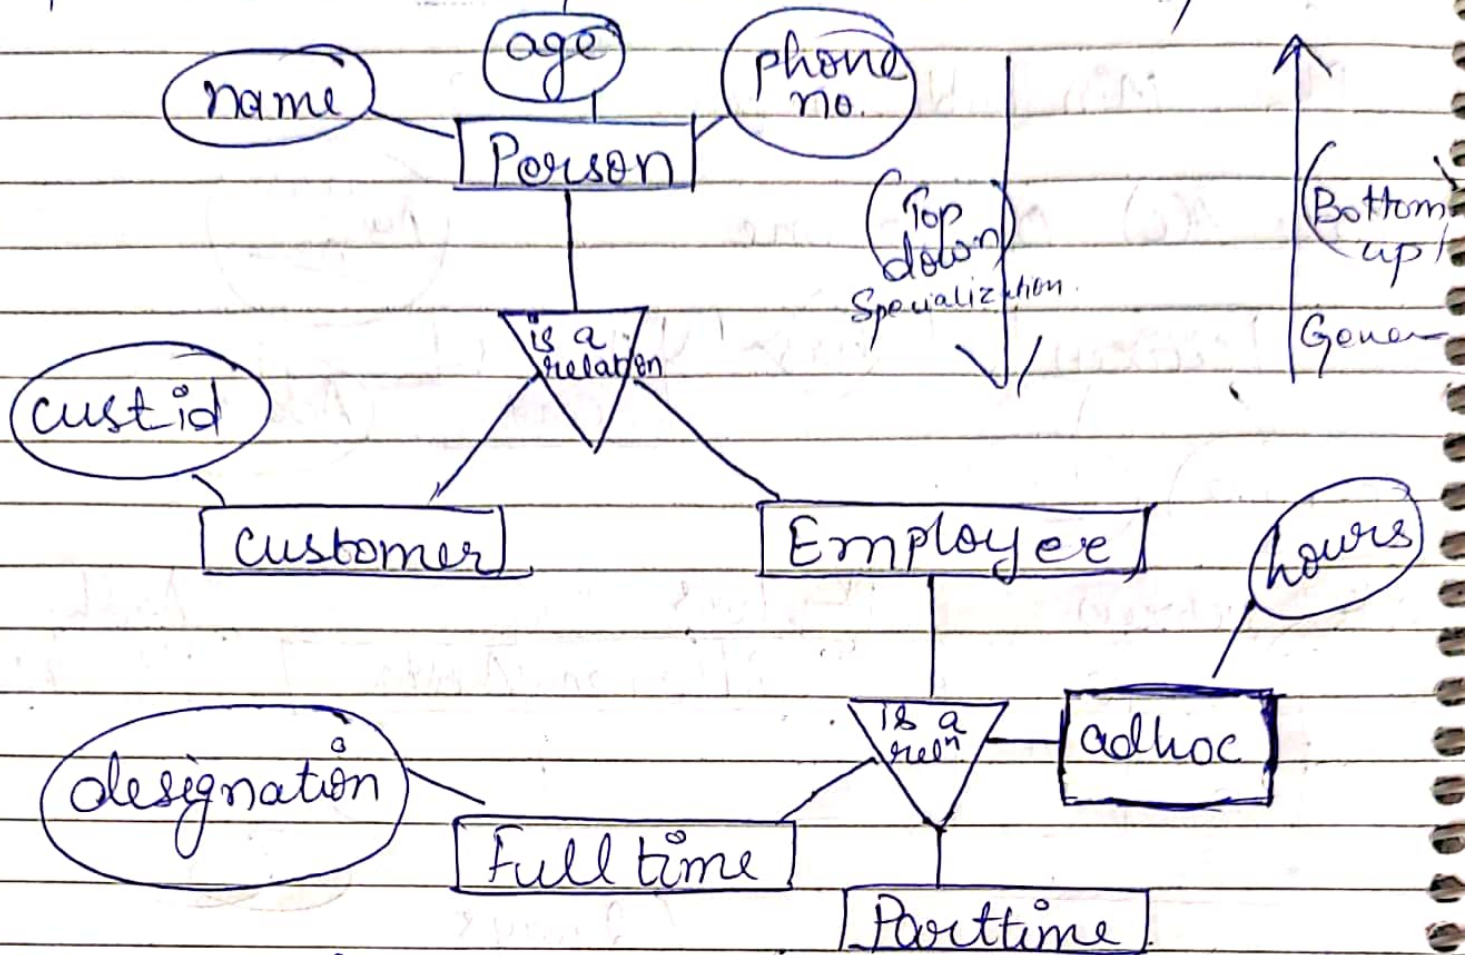 age
phone
no.
name
Person
(Top
down)
Specialization
(Bottom
up)
Gener
is a
relation
cust_id
customer
Employee
hours
is a
relⁿ
adhoc
designation
Full time
Parttime